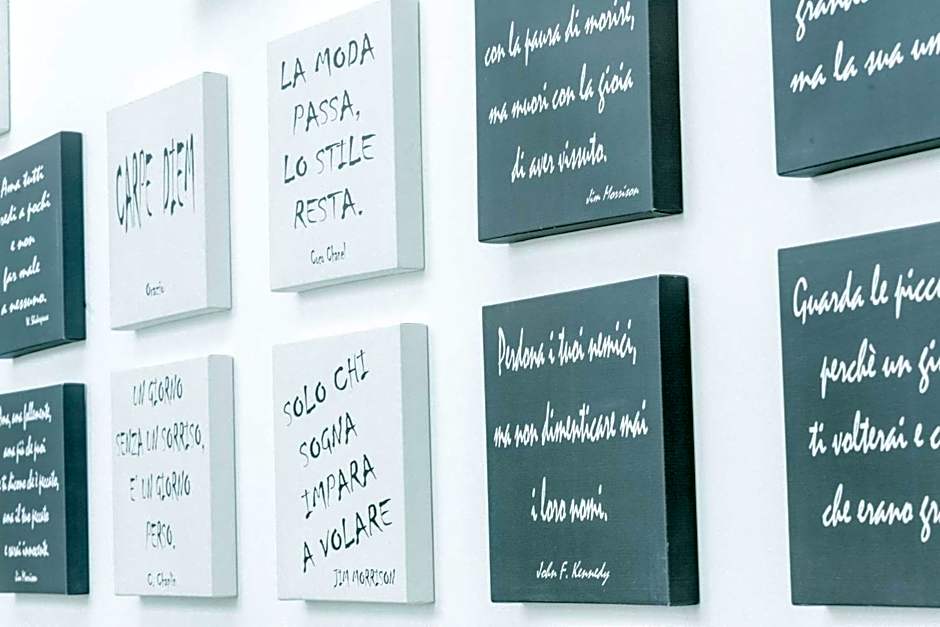 Ama tutti
credi a pochi
e non
far male
a nessuno.
W. Shakespeare
CARPE DIEM
Orazio
LA MODA
PASSA,
LO STILE
RESTA.
Coco Chanel
con la paura di morire,
ma muori con la gioia
di aver vissuto.
Jim Morrison
ma la sua
ama più che puoi
ama il tuo peccato
e sarai innocente.
Jim Morrison
UN GIORNO
SENZA UN SORRISO,
E' UN GIORNO
PERSO.
C. Chaplin
SOLO CHI
SOGNA
IMPARA
A VOLARE
JIM MORRISON
Perdona i tuoi nemici,
ma non dimenticare mai
i loro nomi.
John F. Kennedy
Guarda le picco
perchè un gio
ti volterai e c
che erano gra